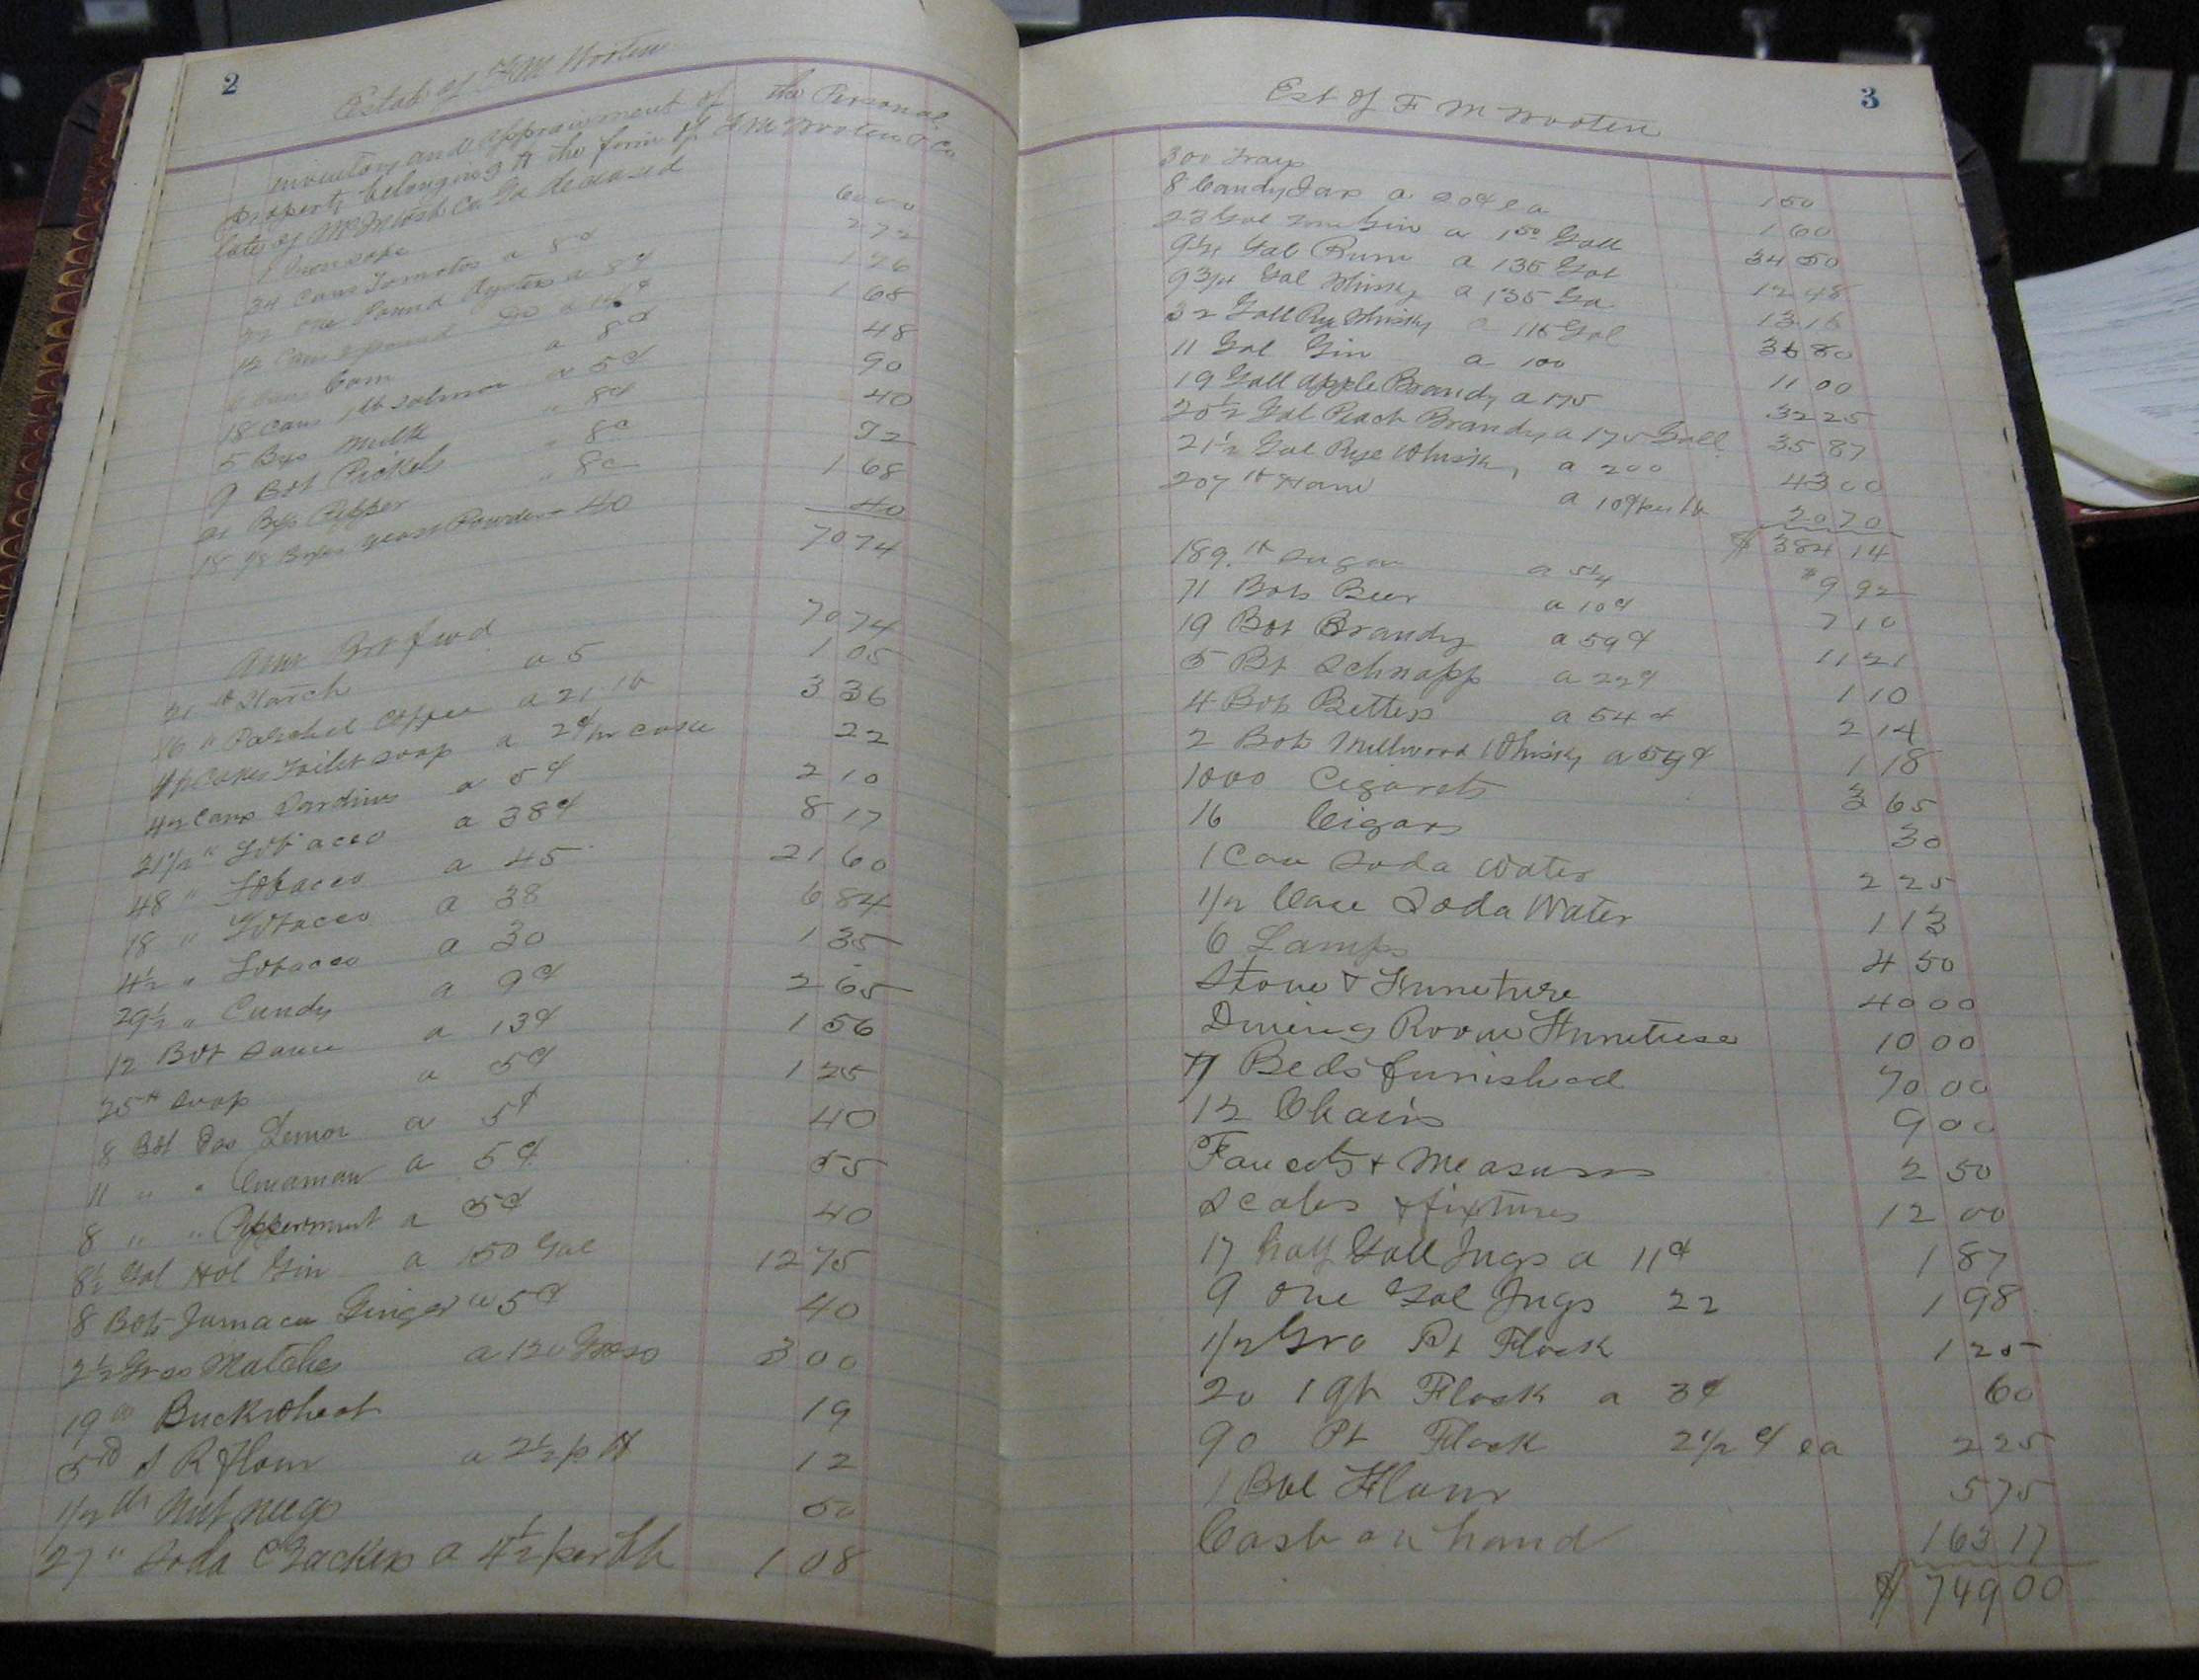 2
Estate of F M Wooten
Inventory and appraisment of the Personal
property belonging to the firm of F M Wooten & Co
late of McIntosh Co Ga deceased
1 60 00
34 Cans Tomatos a 8¢ 2 72
22 One Pound Oysters a 8¢ 1 76
12 Cans 2 pound Do a 14¢ 1 68
6 Cans Corn a 8¢ 48
18 Cans 1 lb Salmon a 5¢ 90
5 Bxs Milk " 8¢ 40
9 Bot Pickels " 8¢ 72
21 Bxs Pepper " 8¢ 1 68
Boxes yeast Powders 40 40
70 74
Amt Brt fwd 70 74
21 lb Starch a 5 1 05
16 " Parched Coffee a 21 lb 3 36
11 Cakes Toilet soap a 2¢ pr cake 22
42 Cans Sardines a 5¢ 2 10
21 1/2 " Tobacco a 38¢ 8 17
48 " Tobacco a 45 21 60
18 " Tobacco a 38 6 84
4 1/2 " Tobacco a 30 1 35
29 1/2 " Candy a 9¢ 2 65
12 Bot Sauce a 13¢ 1 56
25 lb Soap a 5¢ 1 25
8 Bot Ess Lemon a 5¢ 40
11 " " Cinaman a 5¢ 55
8 " " Peppermint a 5¢ 40
8 1/2 Gal Hol Gin a 150 Gal 12 75
8 Bot Jamaca Ginger a 5¢ 40
2 1/2 Gross Matches a 120 Gross 3 00
19 lb Buckwheat 19
5 lb S R flour a 2 1/2 p lb 12
1/2 lb Nutmegs 50
27 " Soda Crackers a 4 1/2 per lb 1 08
3
Est of F M Wooten
300 Trays 1 50
8 Candy Jars a 20¢ ea 1 60
23 Gal Gin a 1 50 Gall 34 50
9 1/4 Gal Rum a 135 Gal 12 48
9 3/4 Gal Whisky a 135 Ga 13 16
32 Gall Rye Whisky a 115 Gal 36 80
11 Gal Gin a 100 11 00
19 Gall apple Brandy a 175 32 25
20 1/2 Gal Peach Brandy a 175 Gall 35 87
21 1/2 Gal Rye Whisky a 200 43 00
207 lb Ham a 10¢ per lb 20 70
$ 384 14
189 lb Sugar a 5 1/4 9 92
71 Bots Beer a 10¢ 7 10
19 Bot Brandy a 59¢ 11 21
5 Bt Schnapp a 22¢ 1 10
4 Bot Betters a 54¢ 2 14
2 Bot Millwood Whisky a 59¢ 1 18
1000 Cigarets 3 65
16 Cigars 30
1 Case Soda Water 2 25
1/2 Case Soda Water 1 13
6 Lamps 4 50
Stove & Furneture 40 00
Dining Room Furneture 10 00
7 Beds furnished 70 00
12 Chairs 9 00
Faucets & Measures 2 50
Scales & fixtures 12 00
17 half Gall Jugs a 11¢ 1 87
9 One Gal Jugs 22 1 98
1/2 Gro Pt Flask 1 25
20 1 qt Flask a 3¢ 60
90 Pt Flask 2 1/2 ¢ ea 2 25
1 Bbl Flour 5 75
Cash on hand 163 17
$ 749 00